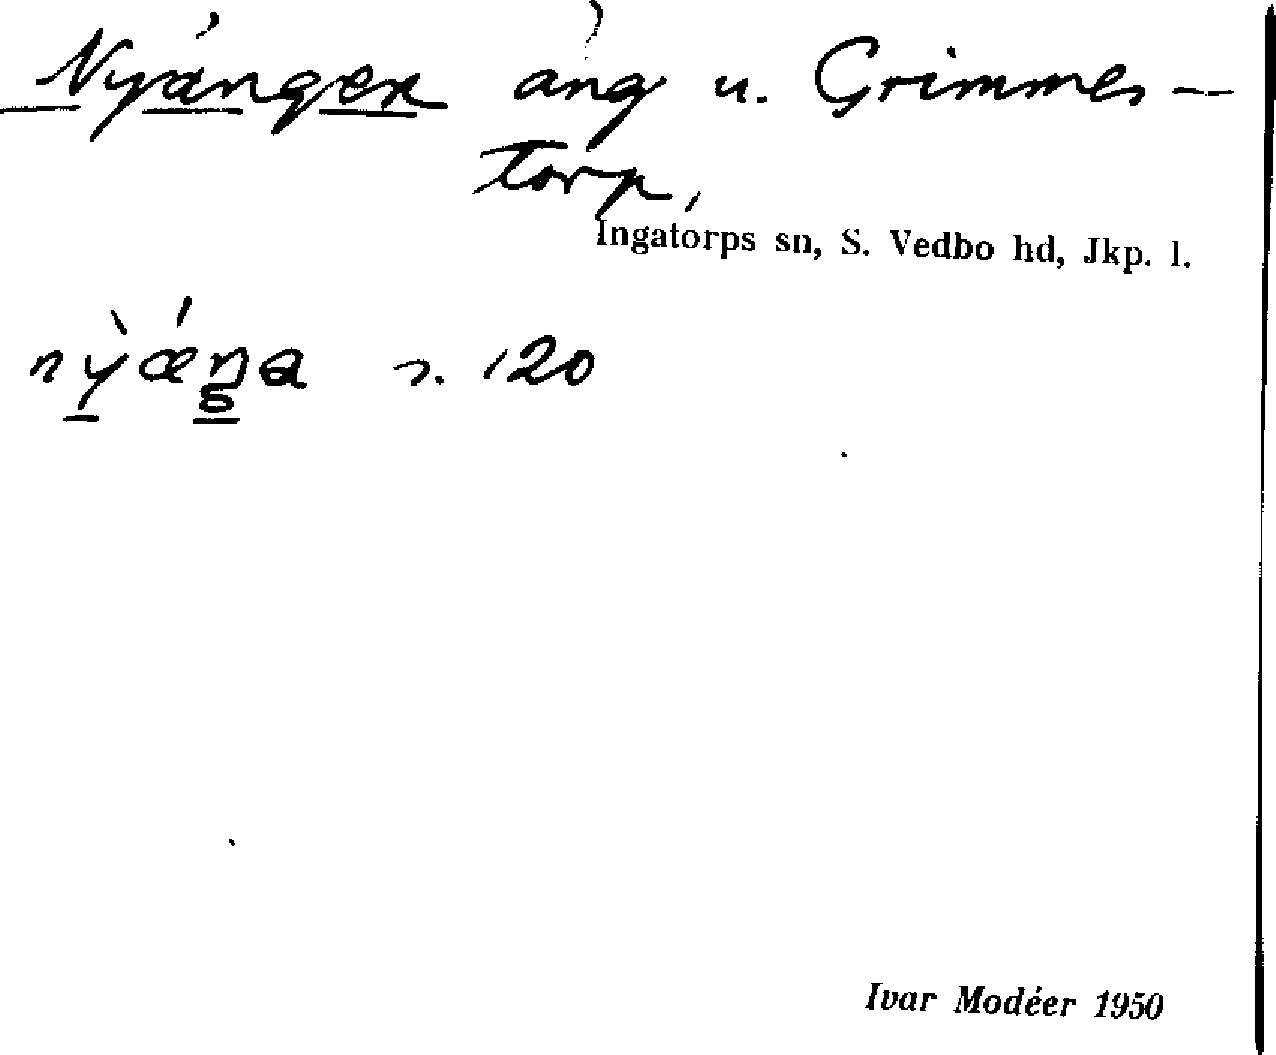 Nyängen äng u. Grimmes-
torp,
Ingatorps sn, S. Vedbo hd, Jkp. l.
s. 120
Ivar Modéer 1950